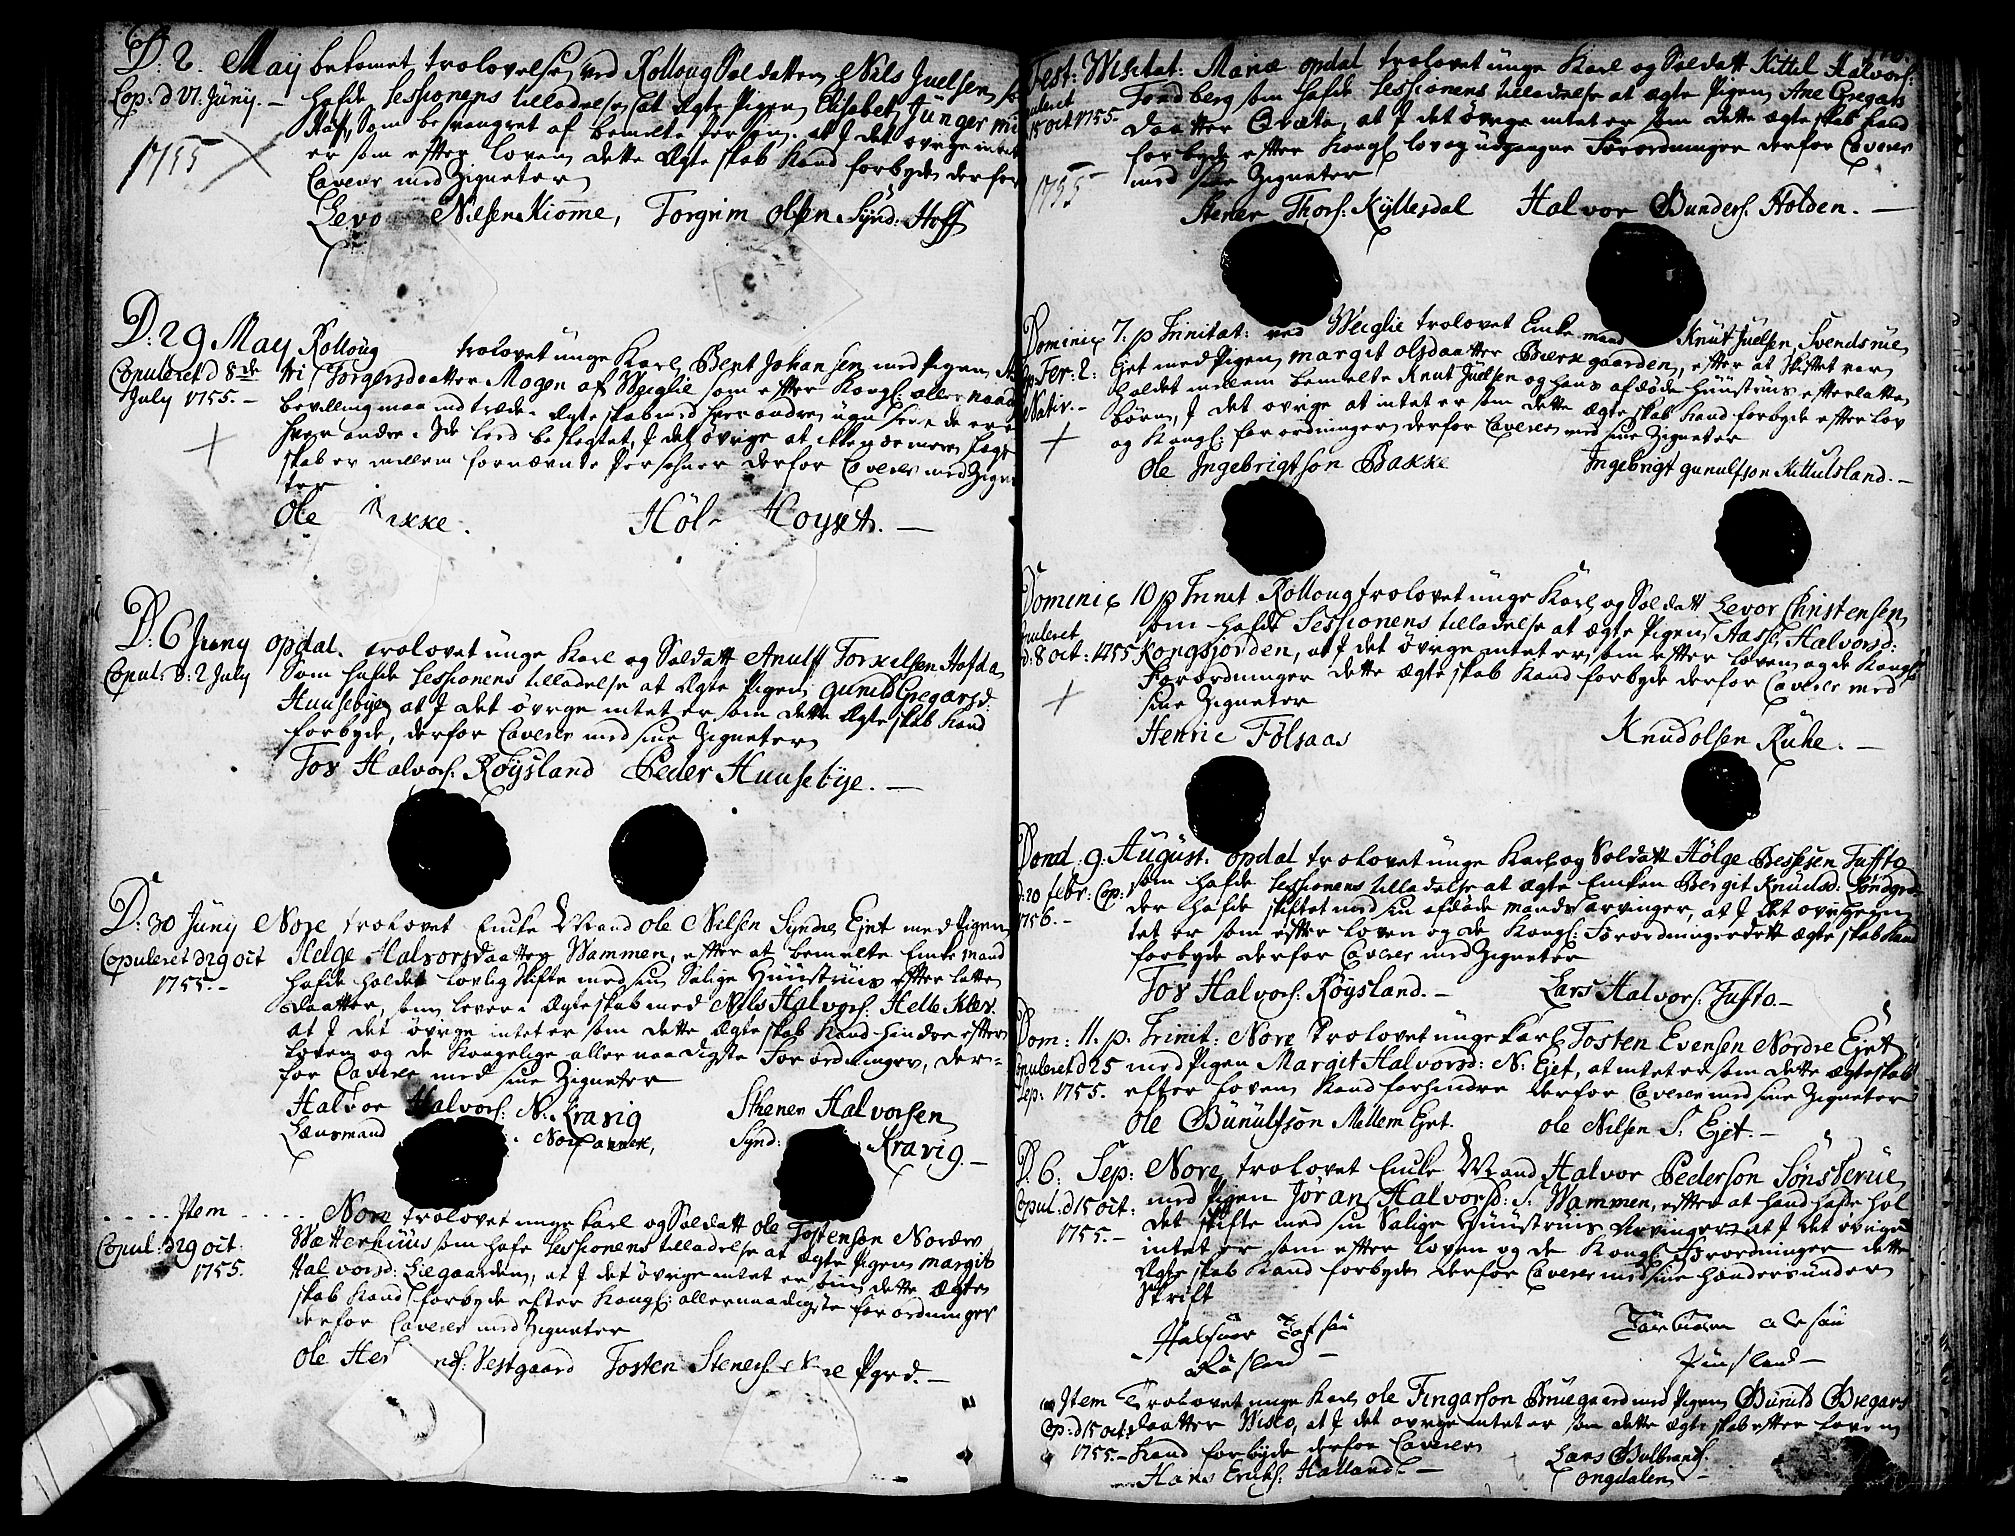 D. 2. May bekomet trolovelse ved Rolloug Soldatten Nils Juelsen
Cop: d 17. Junij. — hafde Sessionens tilladelse at ægte Pigen Elisabeth Jünger
som besvangret af bemelte Person. at I det øvrige intet
1755 er som efter loven dette Ægteskab kand forbyde derfor
Caverer med Zigneter
Levo Nilsen Kiomme, Torgrim Olsen Synd: Hoff
D: 29 May Rolloug trolovet unge Karl Bent Johansen med Pigen
Copuleret d 8de tri Torgersdaatter Mogen af Weiglie som efter Kongl: aller naad
July 1755. — bevilling maa indtræde Ægteskab med hverandre uanseet de er
hver andre i 3de leed beslegtet, I det øvrige at ikke nermere slegt
skab er mellem fornævnte Persohner derfor Caverer med Zigne
ter
Ole Bakke. Høl Høyset. —
D: 6 Juny opdal. trolovet unge Karl og Soldatt Anulf Torkilsen Hofda
Copul. d: 2 July Som hafde Sessionens tilladelse at Ægte Pigen Gunild Gregarsd:
Huusebye at I det øvrige intet er som dette Ægteskab kand
forbyde, derfor Caverer med sine Zigneter
Tov Halvors: Røysland Peder Huusebye. —
D: 30 Junij Nore trolovet Encke Mand Ole Nilsen Syndre Ejet med Pigen
Copuleret d 29 Oct Helge Halvorsdaatter Wammen, efter at bemelte Encke mand
1755. — hafde holdet lovlig Skifte med sin Salige Huustrues efter latte
daatter, som lever i Ægteskab med Nils Halvors: Helle Kler.
at I det øvrige intet er som dette Ægteskab kand hindre efter
Loven og de Kongelige aller naadigste Forordninger, der-
for Caverer med sine Zigneter
Halvor Halvors: N: Kravig Sthener Halvorsen
Lænsmand Nore Synd: Kravig. —
Item Nore trolovet unge Karl og Soldatt Ole Tostenson Nordre
Copul: d 29 Oct. Wætterhuus som hafe Sessionens tilladelse at ægte Pigen Margit
1755. Halvorsd: Liegaarden, at I det øvrige intet er som dette Ægte
skab kand forbyde efter Kongl: allernaadigste forordninger
derfor Caverer med Zigneter
Ole Vestgaard Tosten Steners: Pgrd. —
Fest: Visitat: Mariæ opdal trolovet unge Karl og Soldatt Kittil Halvors:
puleret Fondberg som hafde Sessionens tilladelse at ægte Pigen Ane Gregars
15 Oct 1755. — daatter Qvæta, at I det øvrige intet er som dette ægteskab kand
forbyde efter Kongl lov og udgangne Forordninger derfor Caverer
1755 med sine Zigneter
Stener Thors: Kyllesdal Halvor Gunders: Holden. —
Dominic 7. p Trinitat: ved Weiglie trolovet Encke mand Knut Juelsen Svendsrue
Fer: 2: Ejet med Pigen Margit Olsdaatter Bierkgaarden, efter at Skiftet var
Nativ. — holdet mellem bemelte Knut Juelsen og hans afdøde Huustrues efterlatte
børn, I det øvrige at intet er som dette ægteskab kand forbyde efter lov
og Kongl: forordninger derfor Caverer med sine Zigneter
Ole Ingebrigtson Bakke Ingebrigt Gunulfson Kittulsland. —
Dominic 10 p Trinit Rolloug trolovet unge Karl og Soldatt Levor Christensen
puleret som hafde Sessionens tilladelse at ægte Pigen Aasse Halvorsd:
d: 8 Oct: 1755 Kongsjorden, at I det øvrige intet er som efter loven og de Kongl:
Forordninger dette ægteskab kand forbyde derfor Caverer med
sine Zigneter
Henric Følsaas Knud Olsen Ruhe. —
Dend: 9. August. opdal trolovet unge Karl og Soldatt Hølge Bessesen Tufto
d: 20 febr: Cop: som hafde Sessionens tilladelse at ægte Encken Bergit Knudsd: Søndgrd
1756. — der hafde skiftet med sin afdøde mands arvinger, at I det øvrige in
tet er som efter loven og de Kongl: Forordninger dette ægteskab kand
forbyde derfor Caverer med Zigneter
Tov Halvors: Røysland. — Lars Halvors: Tufto. —
Dom: 11. p. Trinit: Nore trolovet unge Karl Tosten Evensen Nordre Ejet
puleret d 25 med Pigen Margit Halvorsd: N: Ejet, at intet er som dette ægteskab
Sep: 1755. efter loven kand forhindre derfor Caverer med sine Zigneter
Ole Gunulfson Mellem Ejet. Ole Nilsen S: Ejet. —
D. 6: Sep: Nore trolovet Encke Mand Halvor Pederson Sønsterue
Copul: d 15 Oct: med Pigen Jøran Halvorsd: S: Wammen, efter at hand hafde hol
1755. — det skifte med sin Salige Huustrues Arvinger at I det øvrige
intet er som efter loven og de Kongl: Forordninger dette
Ægteskab kand forbyde derfor Caverer med sine hænders under
Skrift
Halfuor Røsland — Torbiørn
Juusland —
Item Trolovet unge Karl Ole Fingarson Bruegaard med Pigen Gunild Gregars
Cop: d 15 Oct: daatter Wislo, at I det øvrige intet er som dette ægteskab efter loven
1755. — kand forbyde derfor Caverer
Hans Erichs: Halland — Lars Gulbrands:
Tongdalen —